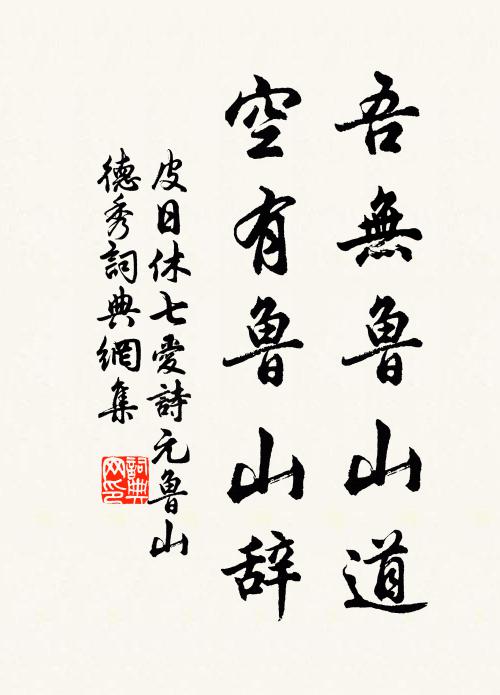 吾無魯山道
空有魯山辞
皮日休七愛詩元魯山
德秀詞典網集
詞典
网印